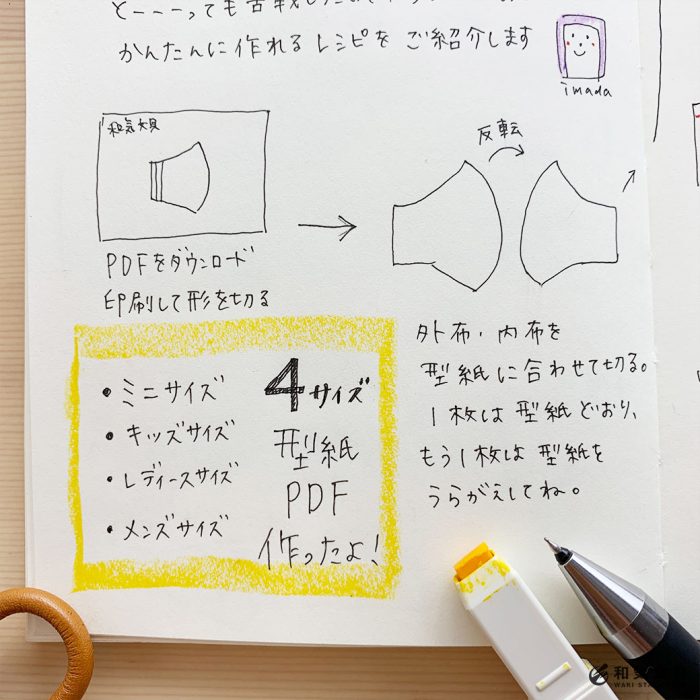 かんたんに作れるレシピをご紹介します
imada
和気文具
反転
PDFをダウンロード
印刷して形を切る
外布・内布を
型紙に合わせて切る。
1枚は型紙どおり、
もう1枚は型紙を
うらがえしてね。
・ミニサイズ
・キッズサイズ
・レディースサイズ
・メンズサイズ
4サイズ
型紙
PDF
作ったよ!